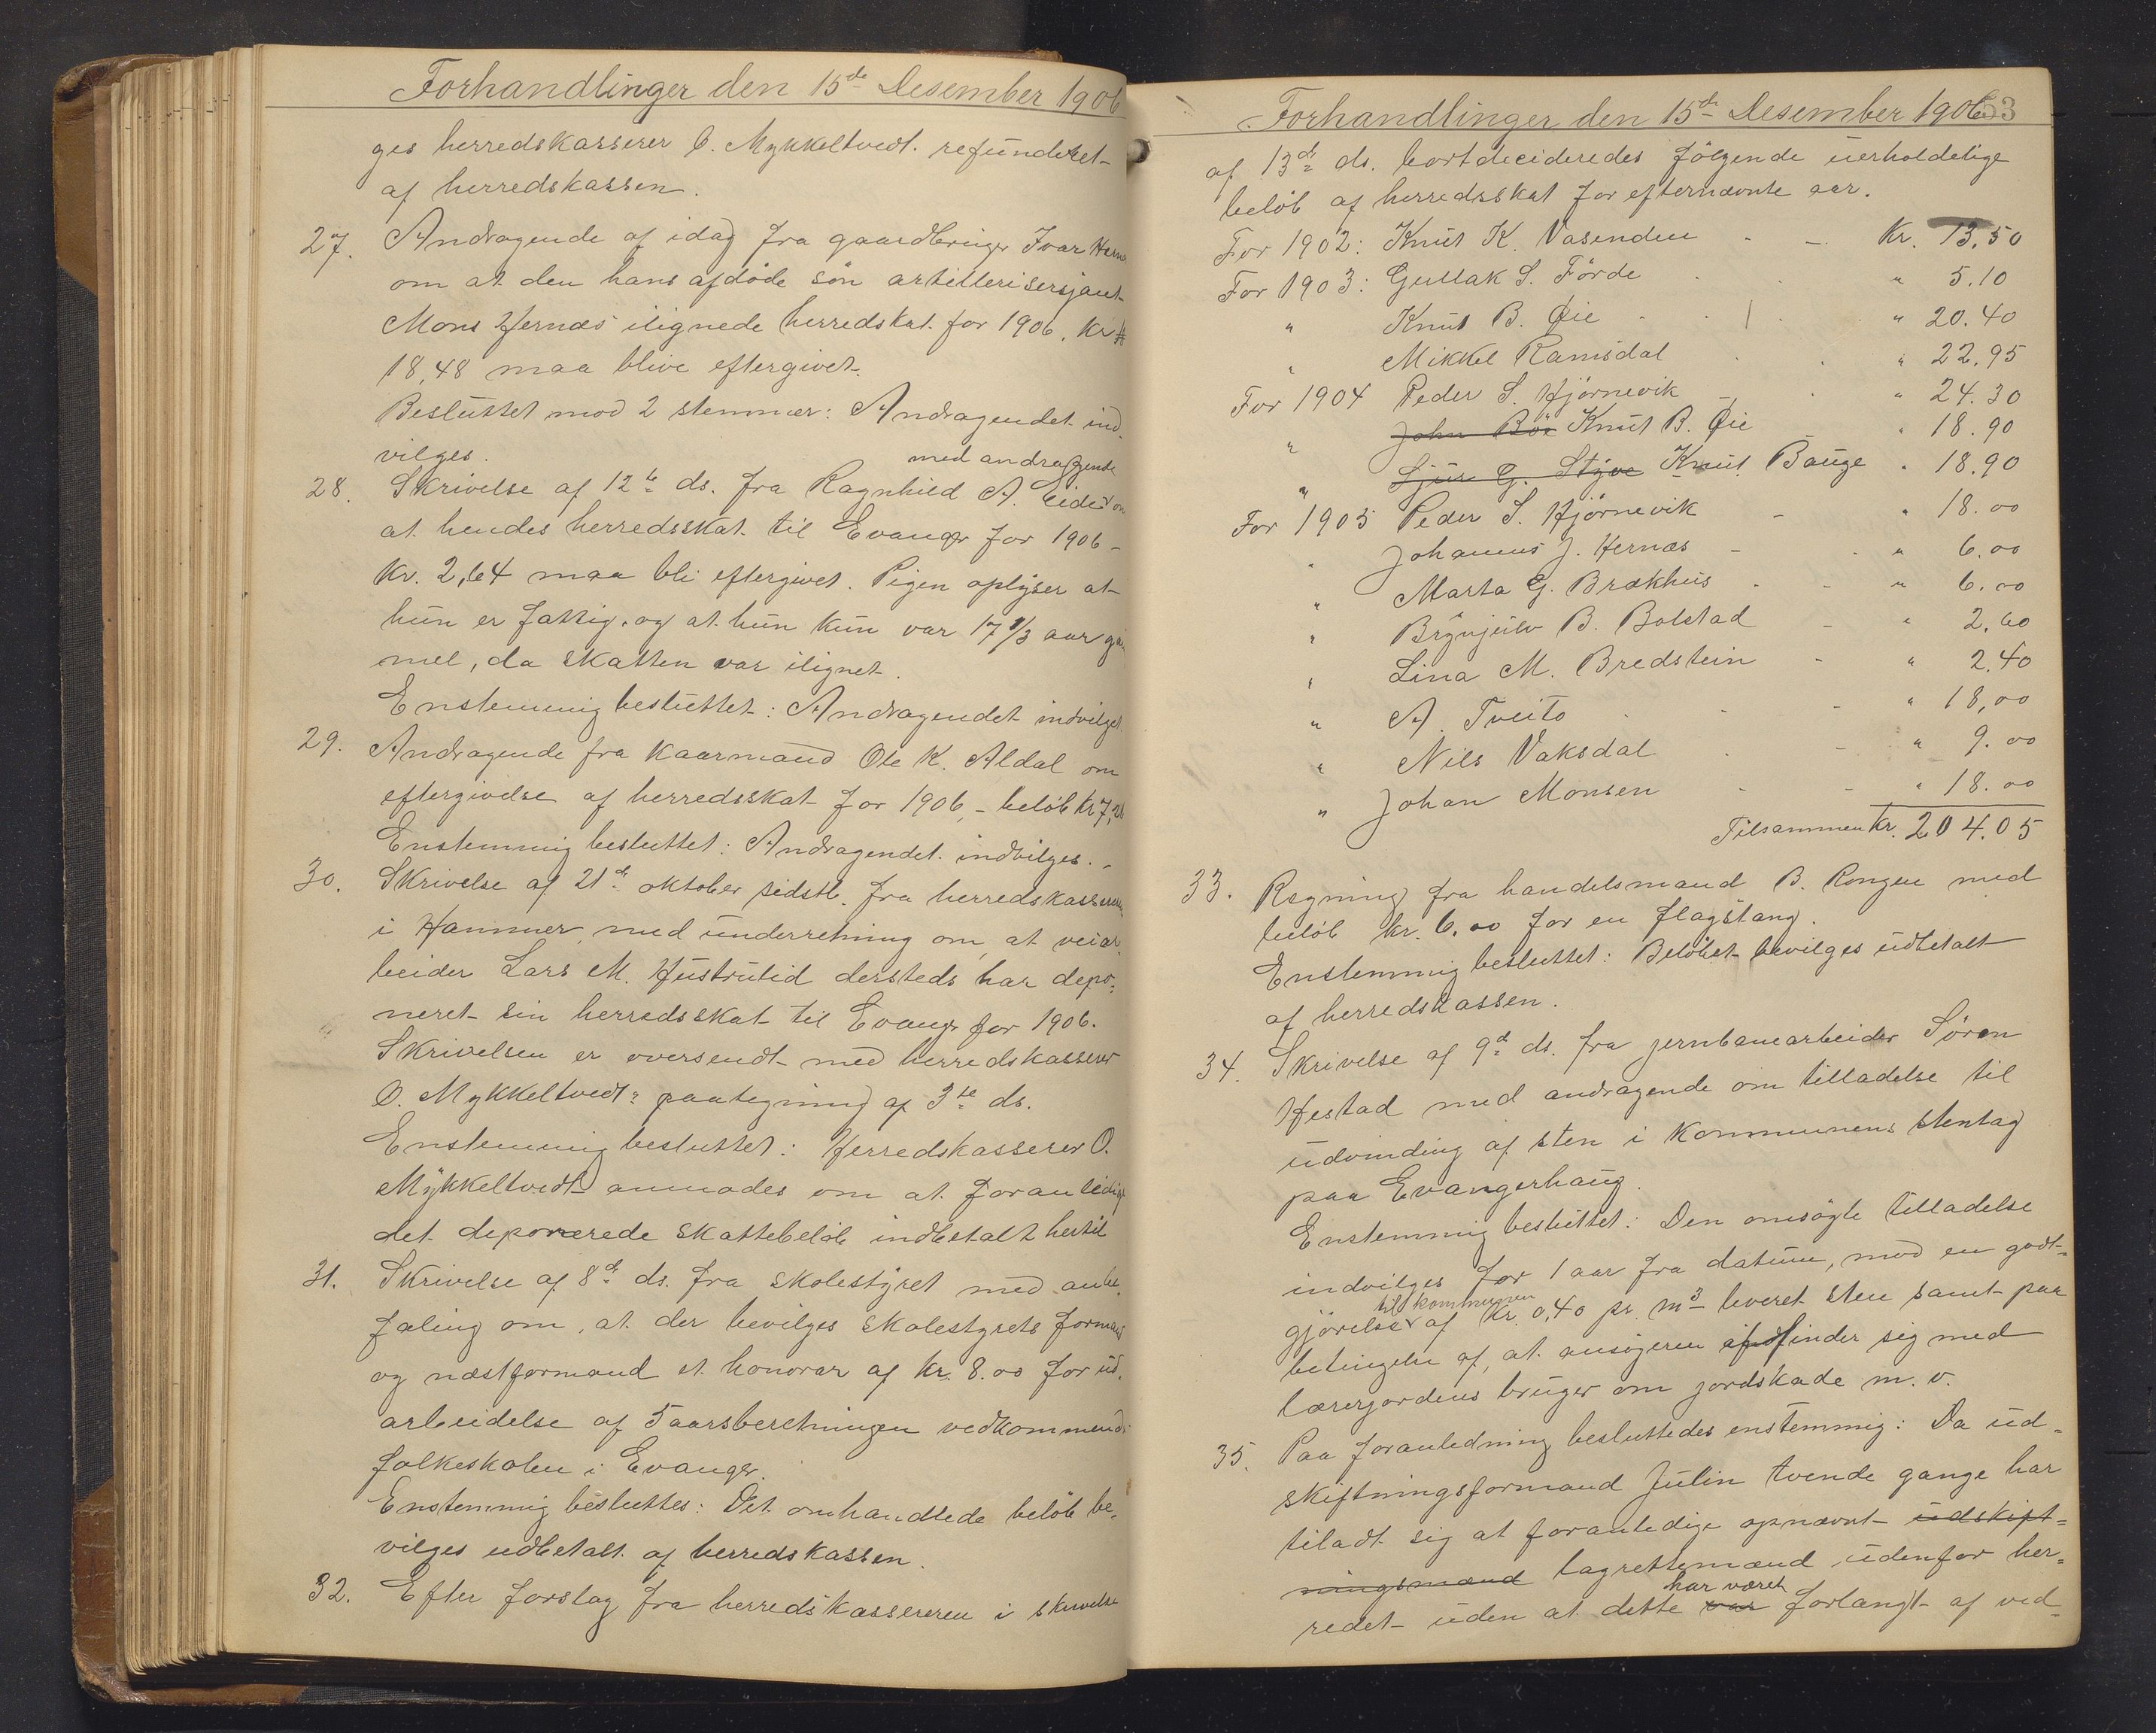 Forhandlinger den 15de Desember 1906
ges herredskasserer O. Mykkeltvedt refunderet
af herredskassen.
27. Andragende af idag fra gaardbruger Ivar Hernæs
om at den hans afdøde søn artillerisersjant
Mons Hernæs ilignede herredskat for 1906, kr
18,48 maa blive eftergivet.
Besluttet mod 2 stemmer: Andragendet ind-
vilges.
28. Skrivelse af 12te ds. fra Ragnhild A. Eide med andragende om
at hendes herredsskat til Evanger for 1906 -
Kr. 2,64 maa bli eftergivet. Pigen oplyser at
hun er fattig, og at hun kun var 17 1/3 aar gam
mel, da skatten var ilignet.
Enstemmig besluttet: Andragendet indvilges.
29. Andragende fra kaarmand Ole K. Aldal om
eftergivelse af herredsskat for 1906, - beløb kr 7,28
Enstemmig besluttet: Andragendet indvilges. -
30. Skrivelse af 21de oktober sidstl. fra herredskassereren
i Hammer, med underretning om, at veiar
beider Lars M. Hustrulid dersteds har depo-
neret sin herredsskat til Evangr for 1906.
Skrivelsen er oversendt med herredskasserer
O. Mykkeltvedts paategning af 3die ds.
Enstemmig besluttet: Herredskasserer O.
Mykkeltvedt anmodes om at foranledige
det deponerede skattebeløb indbetalt hertil
31. Skrivelse af 8de ds. fra skolestyret med anbe-
faling om, at der bevilges skolestyrets formand
og næstformand et honorar af kr. 8.00 for ud-
arbeidelse af 5aarsberetningen vedkommende
folkeskolen i Evangr.
Enstemmig besluttes: Det omhandlede beløb be-
vilges udbetalt af herredskassen.
32. Efter forslag fra herredskassereren i skrivelse
Forhandlinger den 15de Desember 1906 53
af 13de ds. bortdecideredes følgende uerholdelige
beløb af herredsskat for efternævnte aar.
For 1902: Knut K. Vasenden - - Kr. 13.50
For 1903: Gullak S. Førde " 5.10
" Knut B. Øie " 20.40
" Mikkel Ramsdal " 22.95
For 1904 Peder S. Hjørnevik " 24.30
" John Bøe Knut B. Øie " 18.90
" Sjur G. Styve Knut Bauge " 18.90
For 1905 Peder S. Hjørnevik - " 18.00
" Johannes J. Hernæs - " 6.00
" Marta G. Brækhus - " 6.00
" Brynjulv B. Bolstad - " 2.60
" Lina M. Bredstein - " 2.40
" A. Tveito - " 18,00
" Nils Vaksdal - " 9.00
" Johan Monsen - " 18.00
Tilsammen Kr. 204.05
33. Regning fra handelsmand B. Rongen med
beløb kr. 6.00 for en flagstang.
Enstemmig besluttet: Beløbet bevilges udbetalt
af herredskassen.
34. Skrivelse af 9de ds. fra jernbanearbeider Søren
Hestad med andragende om tilladelse til
udvinding af sten i kommunens stentag
paa Evangerhaug.
Enstemmig besluttet: Den omsøgte tilladelse
indvilges for 1 aar fra datum, mod en godt-
gjørelse til kommunen af Kr. 0,40 pr. m3 leveret sten samt paa
betingelse af, at ansøgeren affinder sig med
lærerjordens bruger om jordskade m.v.
35. Paa foranledning besluttedes enstemmig: Da ud-
skiftningsformand Julin tvende gange har
tiladt sig at foranledige opnævnt udskift-
ningsmænd lagrettemænd udenfor her-
redet uden at dette var har været forlangt af ved-